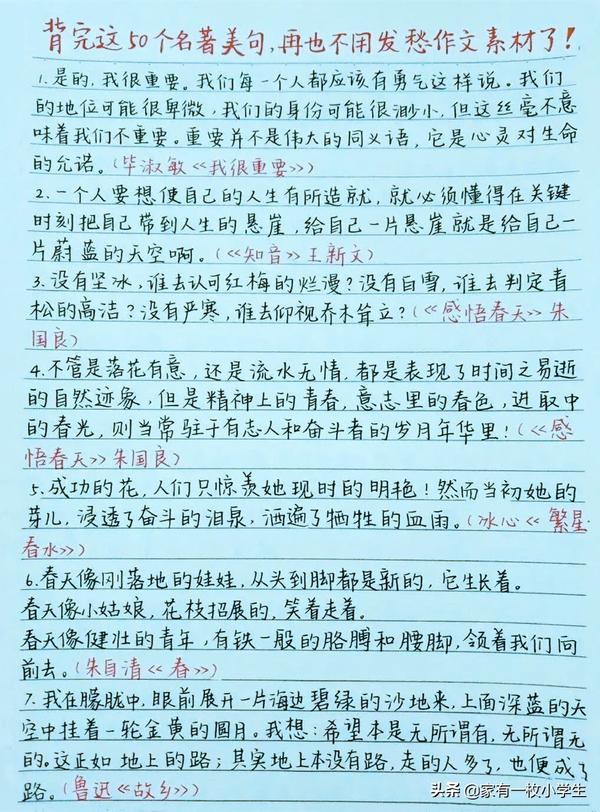 背完这50个名著美句,再也不用发愁作文素材了!
1.是的,我很重要。我们每一个人都应该有勇气这样说。我们
的地位可能很卑微,我们的身份可能很渺小,但这丝毫不意
味着我们不重要。重要并不是伟大的同义语,它是心灵对生命
的允诺。(毕淑敏《我很重要》)
2.一个人要想使自己的人生有所造就,就必须懂得在关键
时刻把自己带到人生的悬崖,给自己一片悬崖就是给自己一
片蔚蓝的天空啊。(《知音》王新文)
3.没有坚冰,谁去认可红梅的烂漫?没有白雪,谁去判定青
松的高洁?没有严寒,谁去仰视乔木耸立?(《感悟春天》朱
国良)
4.不管是落花有意,还是流水无情,都是表现了时间之易逝
的自然迹象,但是精神上的青春,意志里的春色,进取中
的春光,则当常驻于有志人和奋斗者的岁月年华里!(《感
悟春天》朱国良)
5.成功的花,人们只惊羡她现时的明艳!然而当初她的
芽儿,浸透了奋斗的泪泉,洒遍了牺牲的血雨。(冰心《繁星·
春水》)
6.春天像刚落地的娃娃,从头到脚都是新的,它生长着。
春天像小姑娘,花枝招展的,笑着走着。
春天像健壮的青年,有铁一般的胳膊和腰脚,领着我们向
前去。(朱自清《春》)
7.我在朦胧中,眼前展开一片海边碧绿的沙地来,上面深蓝的天
空中挂着一轮金黄的圆月。我想:希望本是无所谓有,无所谓无
的。这正如地上的路;其实地上本没有路,走的人多了,也便成了
路。(鲁迅《故乡》)
头条@家有一枚小学生